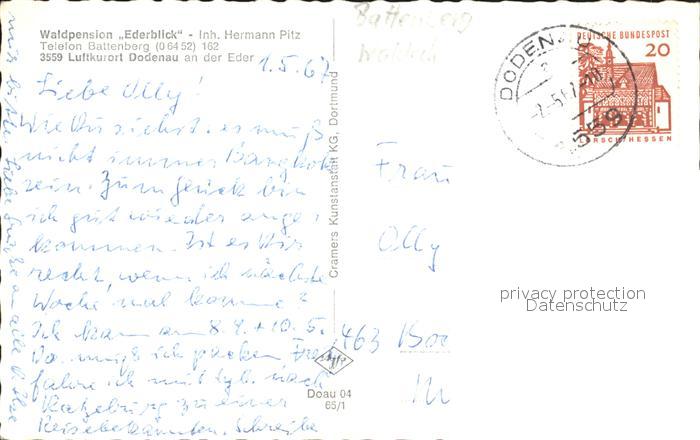 Waldpension „Ederblick“ - Inh. Hermann Pitz
Telefon Battenberg (0 64 52) 162
3559 Luftkurort Dodenau an der Eder
Battenberg
1.5.67
Liebe Olly!
Wie Du siehst, es muß
nicht immer Bangkok
sein. Zum Glück bin
ich gut wieder ange-
kommen. Ist es Dir
recht, wenn ich nächste
Woche mal komme?
Ich kam am 8. 9. + 10. 5.
Do. muß ich packen
fahre ich mit nach
Ratzeburg zu einer
Reisebekannten. Schreibe
Cramers Kunstanstalt KG, Dortmund
Doau 04
65/1
Frau
Olly
463 Boc
DODENAU
559
DEUTSCHE BUNDESPOST
20
LORSCH/HESSEN
privacy protection
Datenschutz